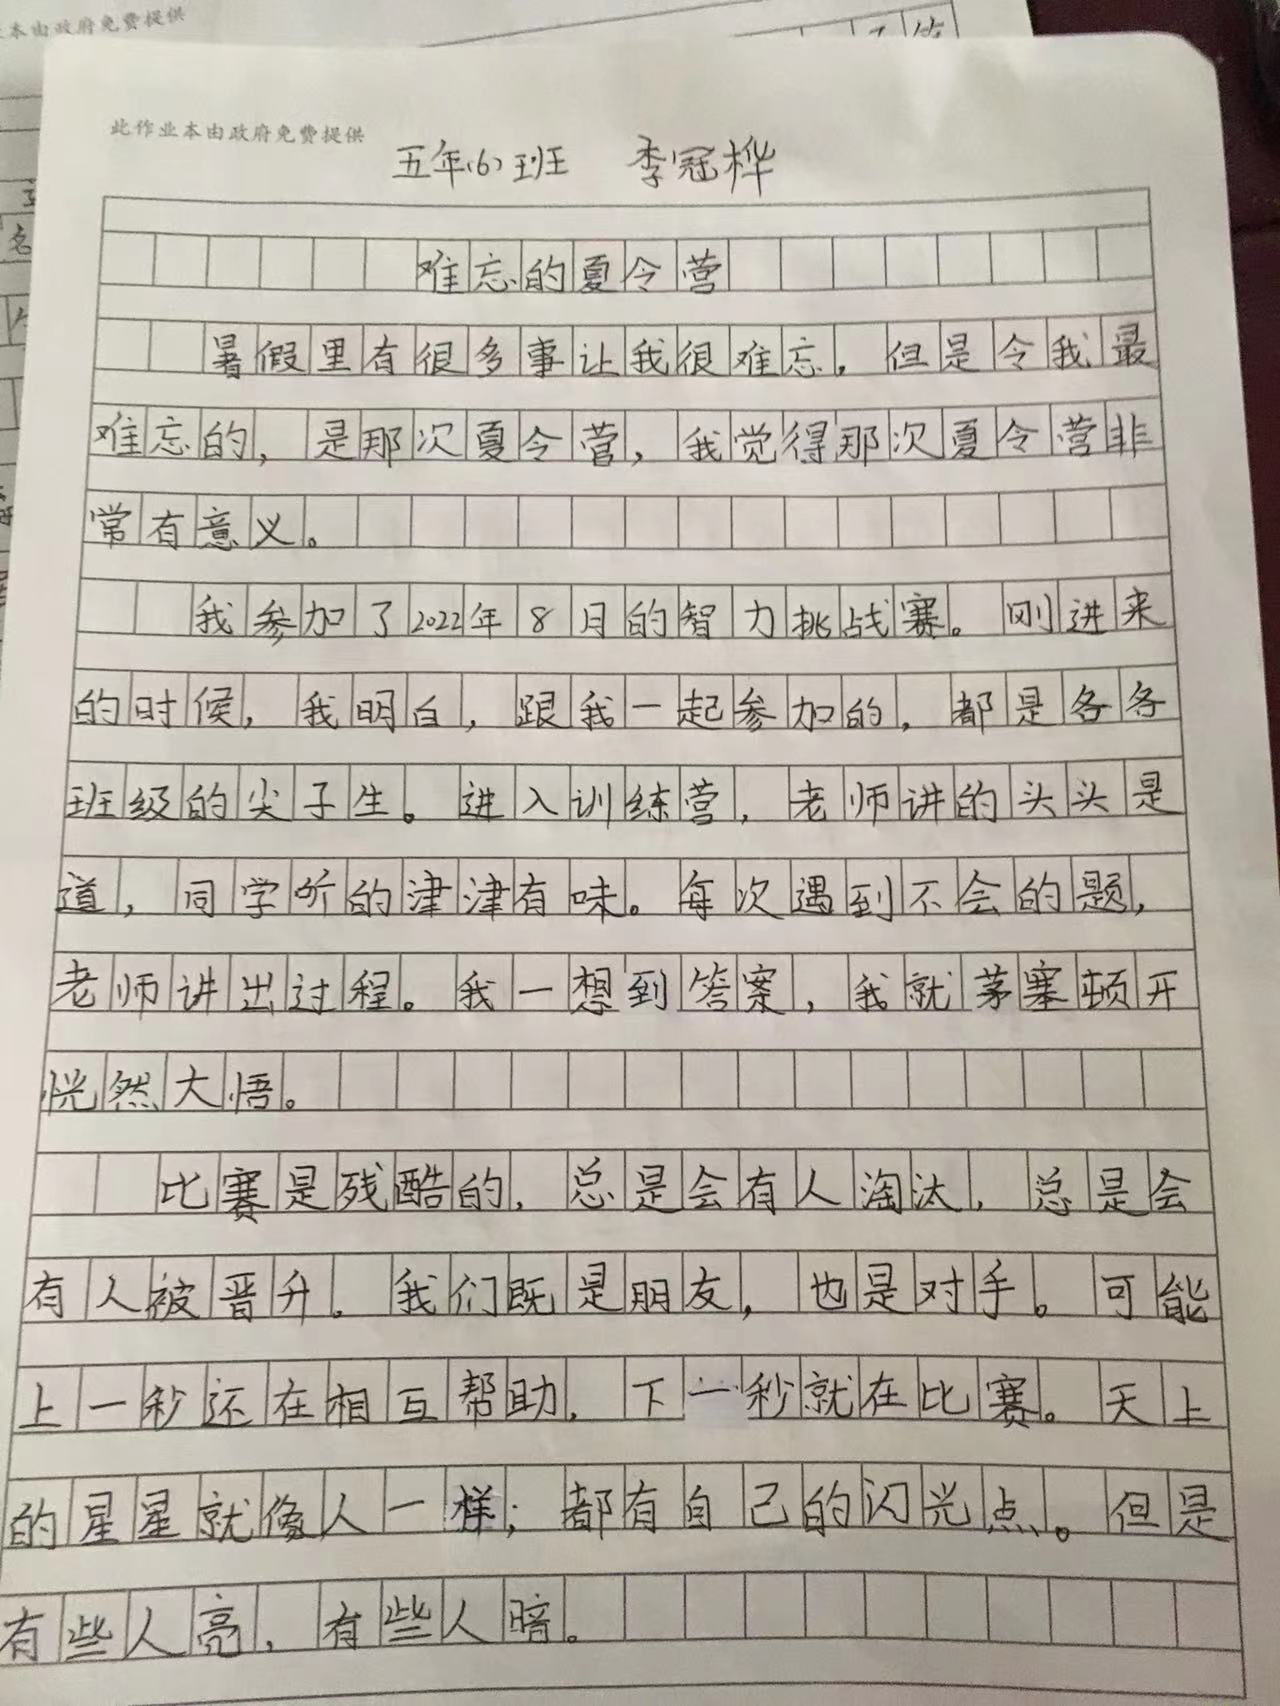 本由政府免费提供
此作业本由政府免费提供
五年(6)班 李冠桦
难忘的夏令营
暑假里有很多事让我很难忘，但是令我最
难忘的，是那次夏令营，我觉得那次夏令营非
常有意义。
我参加了2022年8月的智力挑战赛。刚进来
的时候，我明白，跟我一起参加的，都是各各
班级的尖子生。进入训练营，老师讲的头头是
道，同学听的津津有味。每次遇到不会的题，
老师讲出过程。我一想到答案，我就茅塞顿开
恍然大悟。
比赛是残酷的，总是会有人淘汰，总是会
有人被晋升。我们既是朋友，也是对手。可能
上一秒还在相互帮助，下一秒就在比赛。天上
的星星就像人一样；都有自己的闪光点。但是
有些人亮，有些人暗。